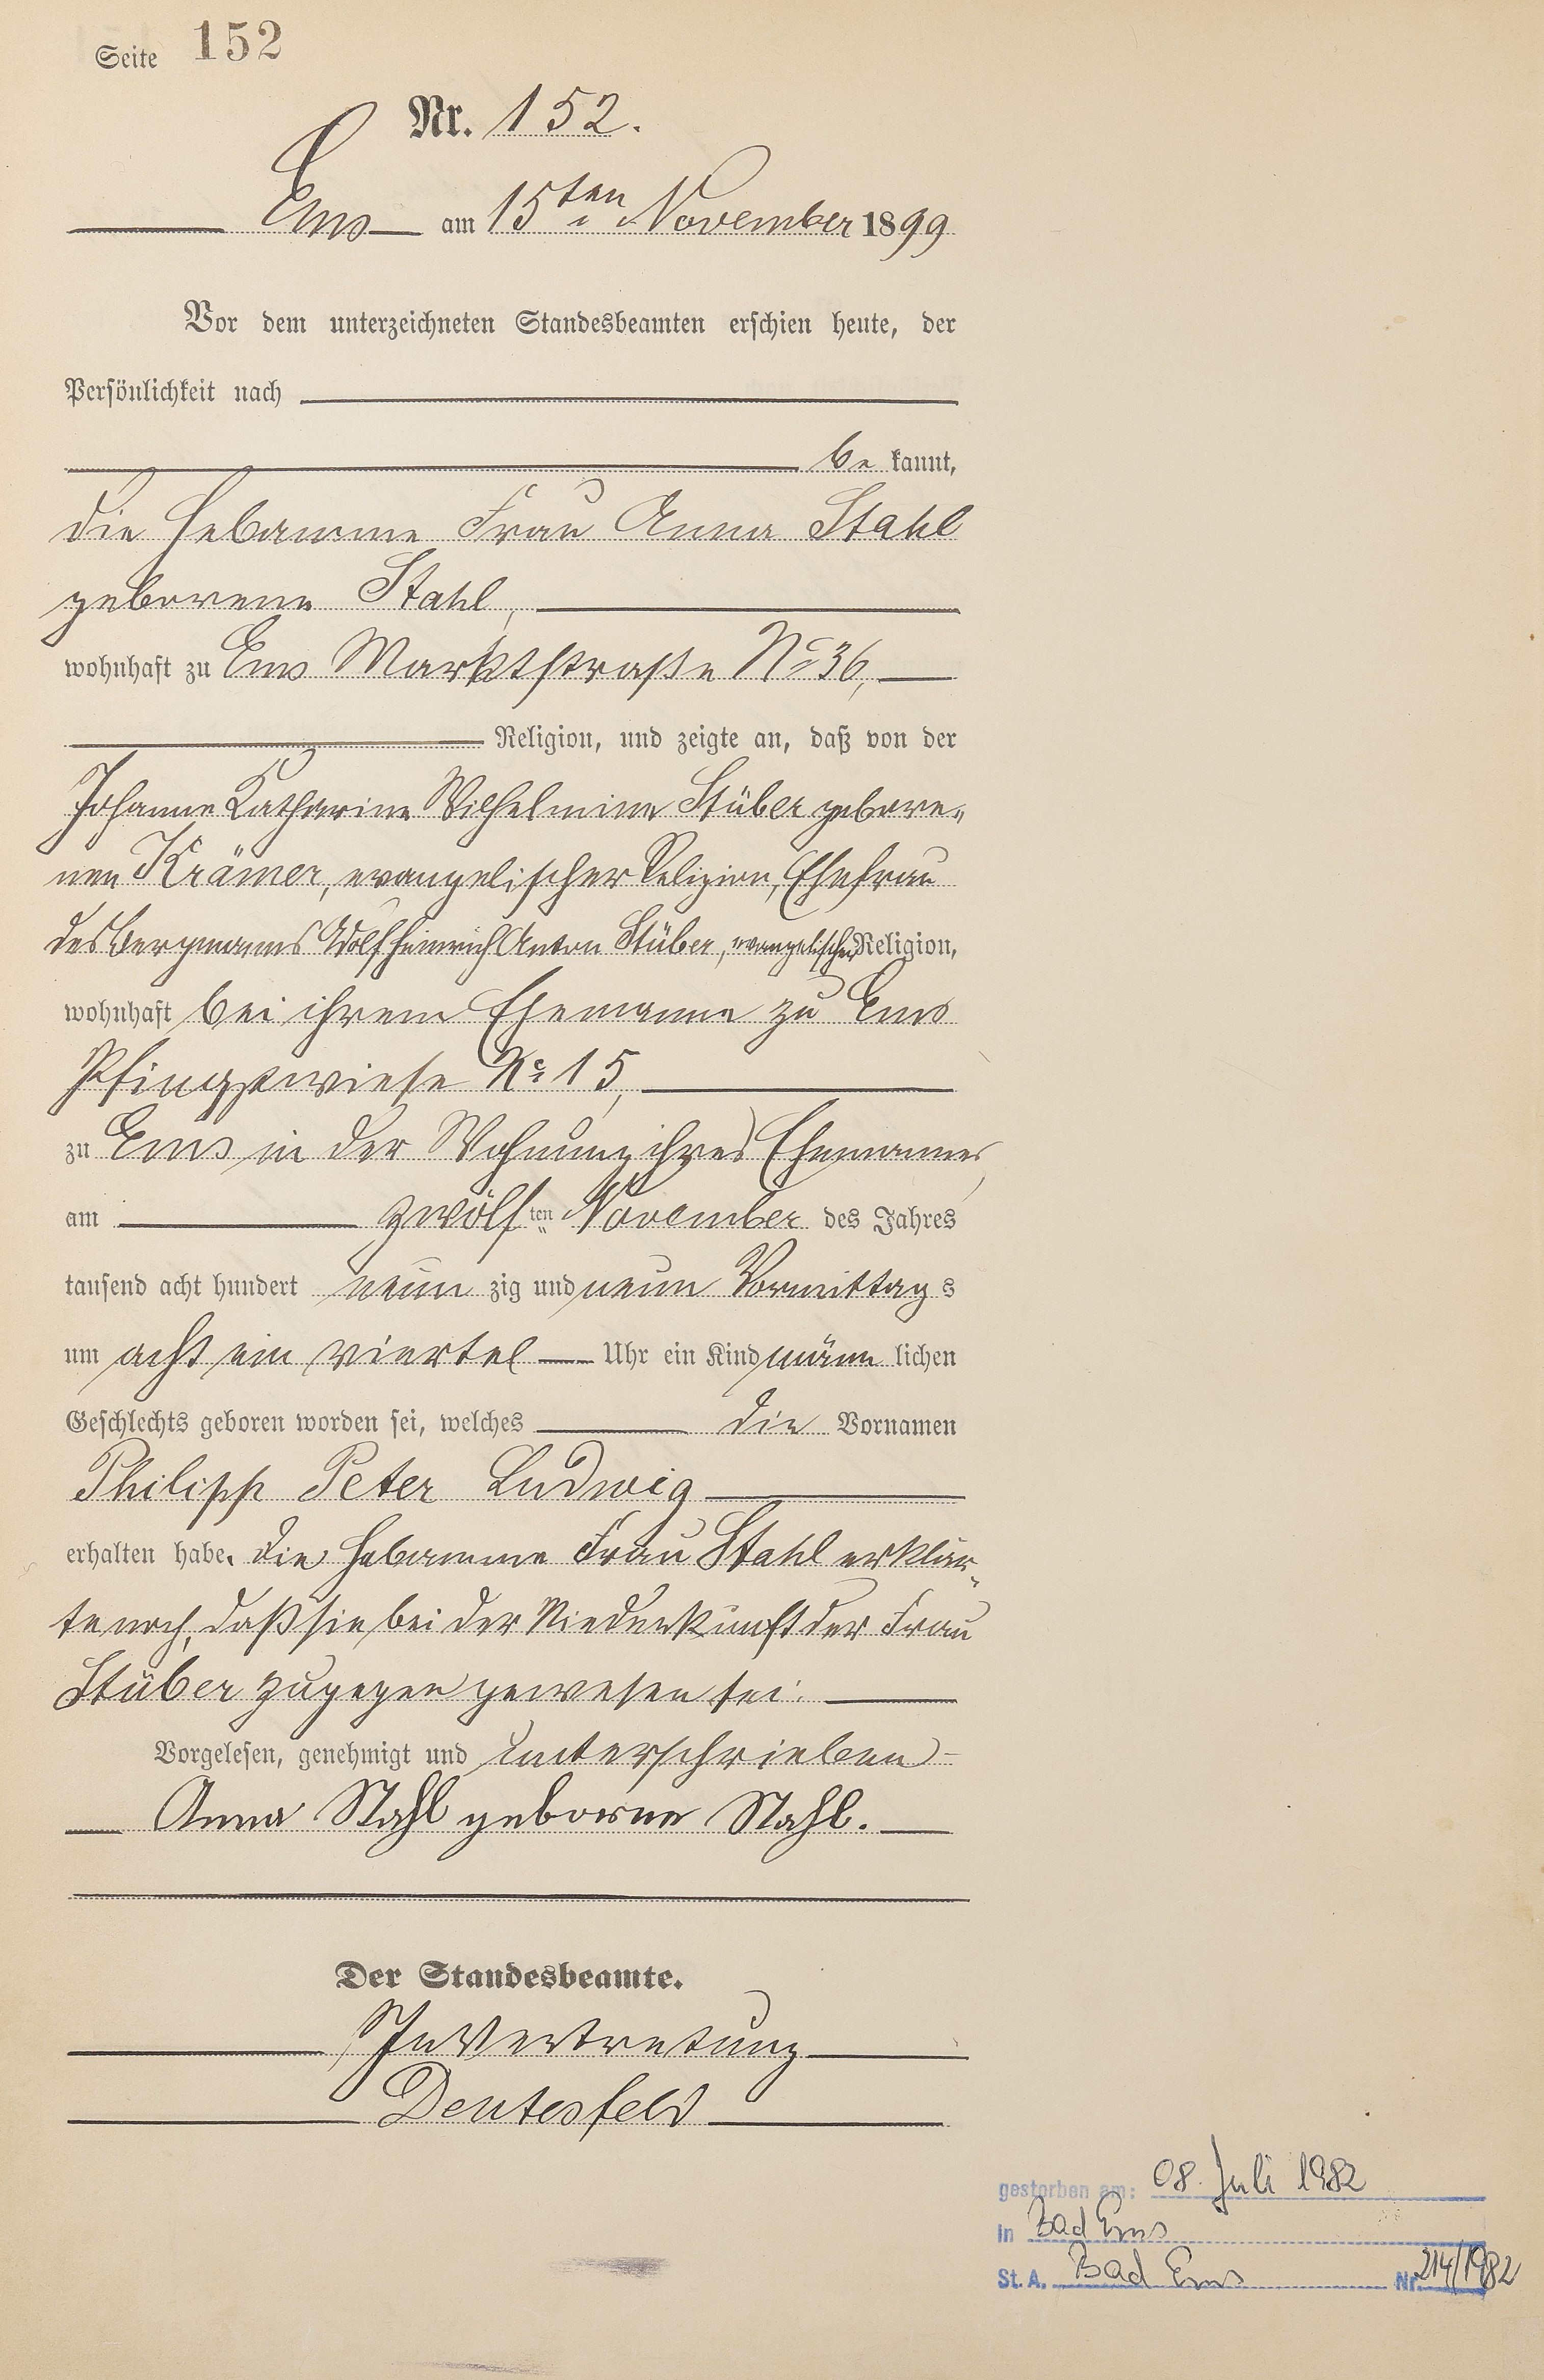 Seite 152
Nr. 152.
Ems am 15ten November 1899
Vor dem unterzeichneten Standesbeamten erschien heute, der
Persönlichkeit nach
be kannt,
die Hebamme Frau Anna Stahl
geborene Stahl,
wohnhaft zu Ems Marktstraße No 36,
Religion, und zeigte an, daß von der
Johanne Katharine Wilhelmine Stüber gebore-
nen Krämer, evangelischer Religion, Ehefrau
des Bergmanns Adolf Heinrich Anton Stüber, evangelischer Religion,
wohnhaft bei ihrem Ehemanne zu Ems
Pfingstwiese No 15,
zu Ems in der Wohnung ihres Ehemannes,
am zwölften November des Jahres
tausend acht hundert neun zig und neun Vormittag s
um acht ein viertel Uhr ein Kind männ lichen
Geschlechts geboren worden sei, welches die Vornamen
Philipp Peter Ludwig
erhalten habe. Die Hebamme Frau Stahl erklär-
te noch, daß sie bei der Niederkunft der Frau
Stüber zugegen gewesen sei.
Vorgelesen, genehmigt und unterschrieben
Anna Stahl geborne Stahl.
Der Standesbeamte.
In Vertretung
Deutesfeld
gestorben am: 08. Juli 1982
in Bad Ems
St. A. Bad Ems Nr. 214/1982